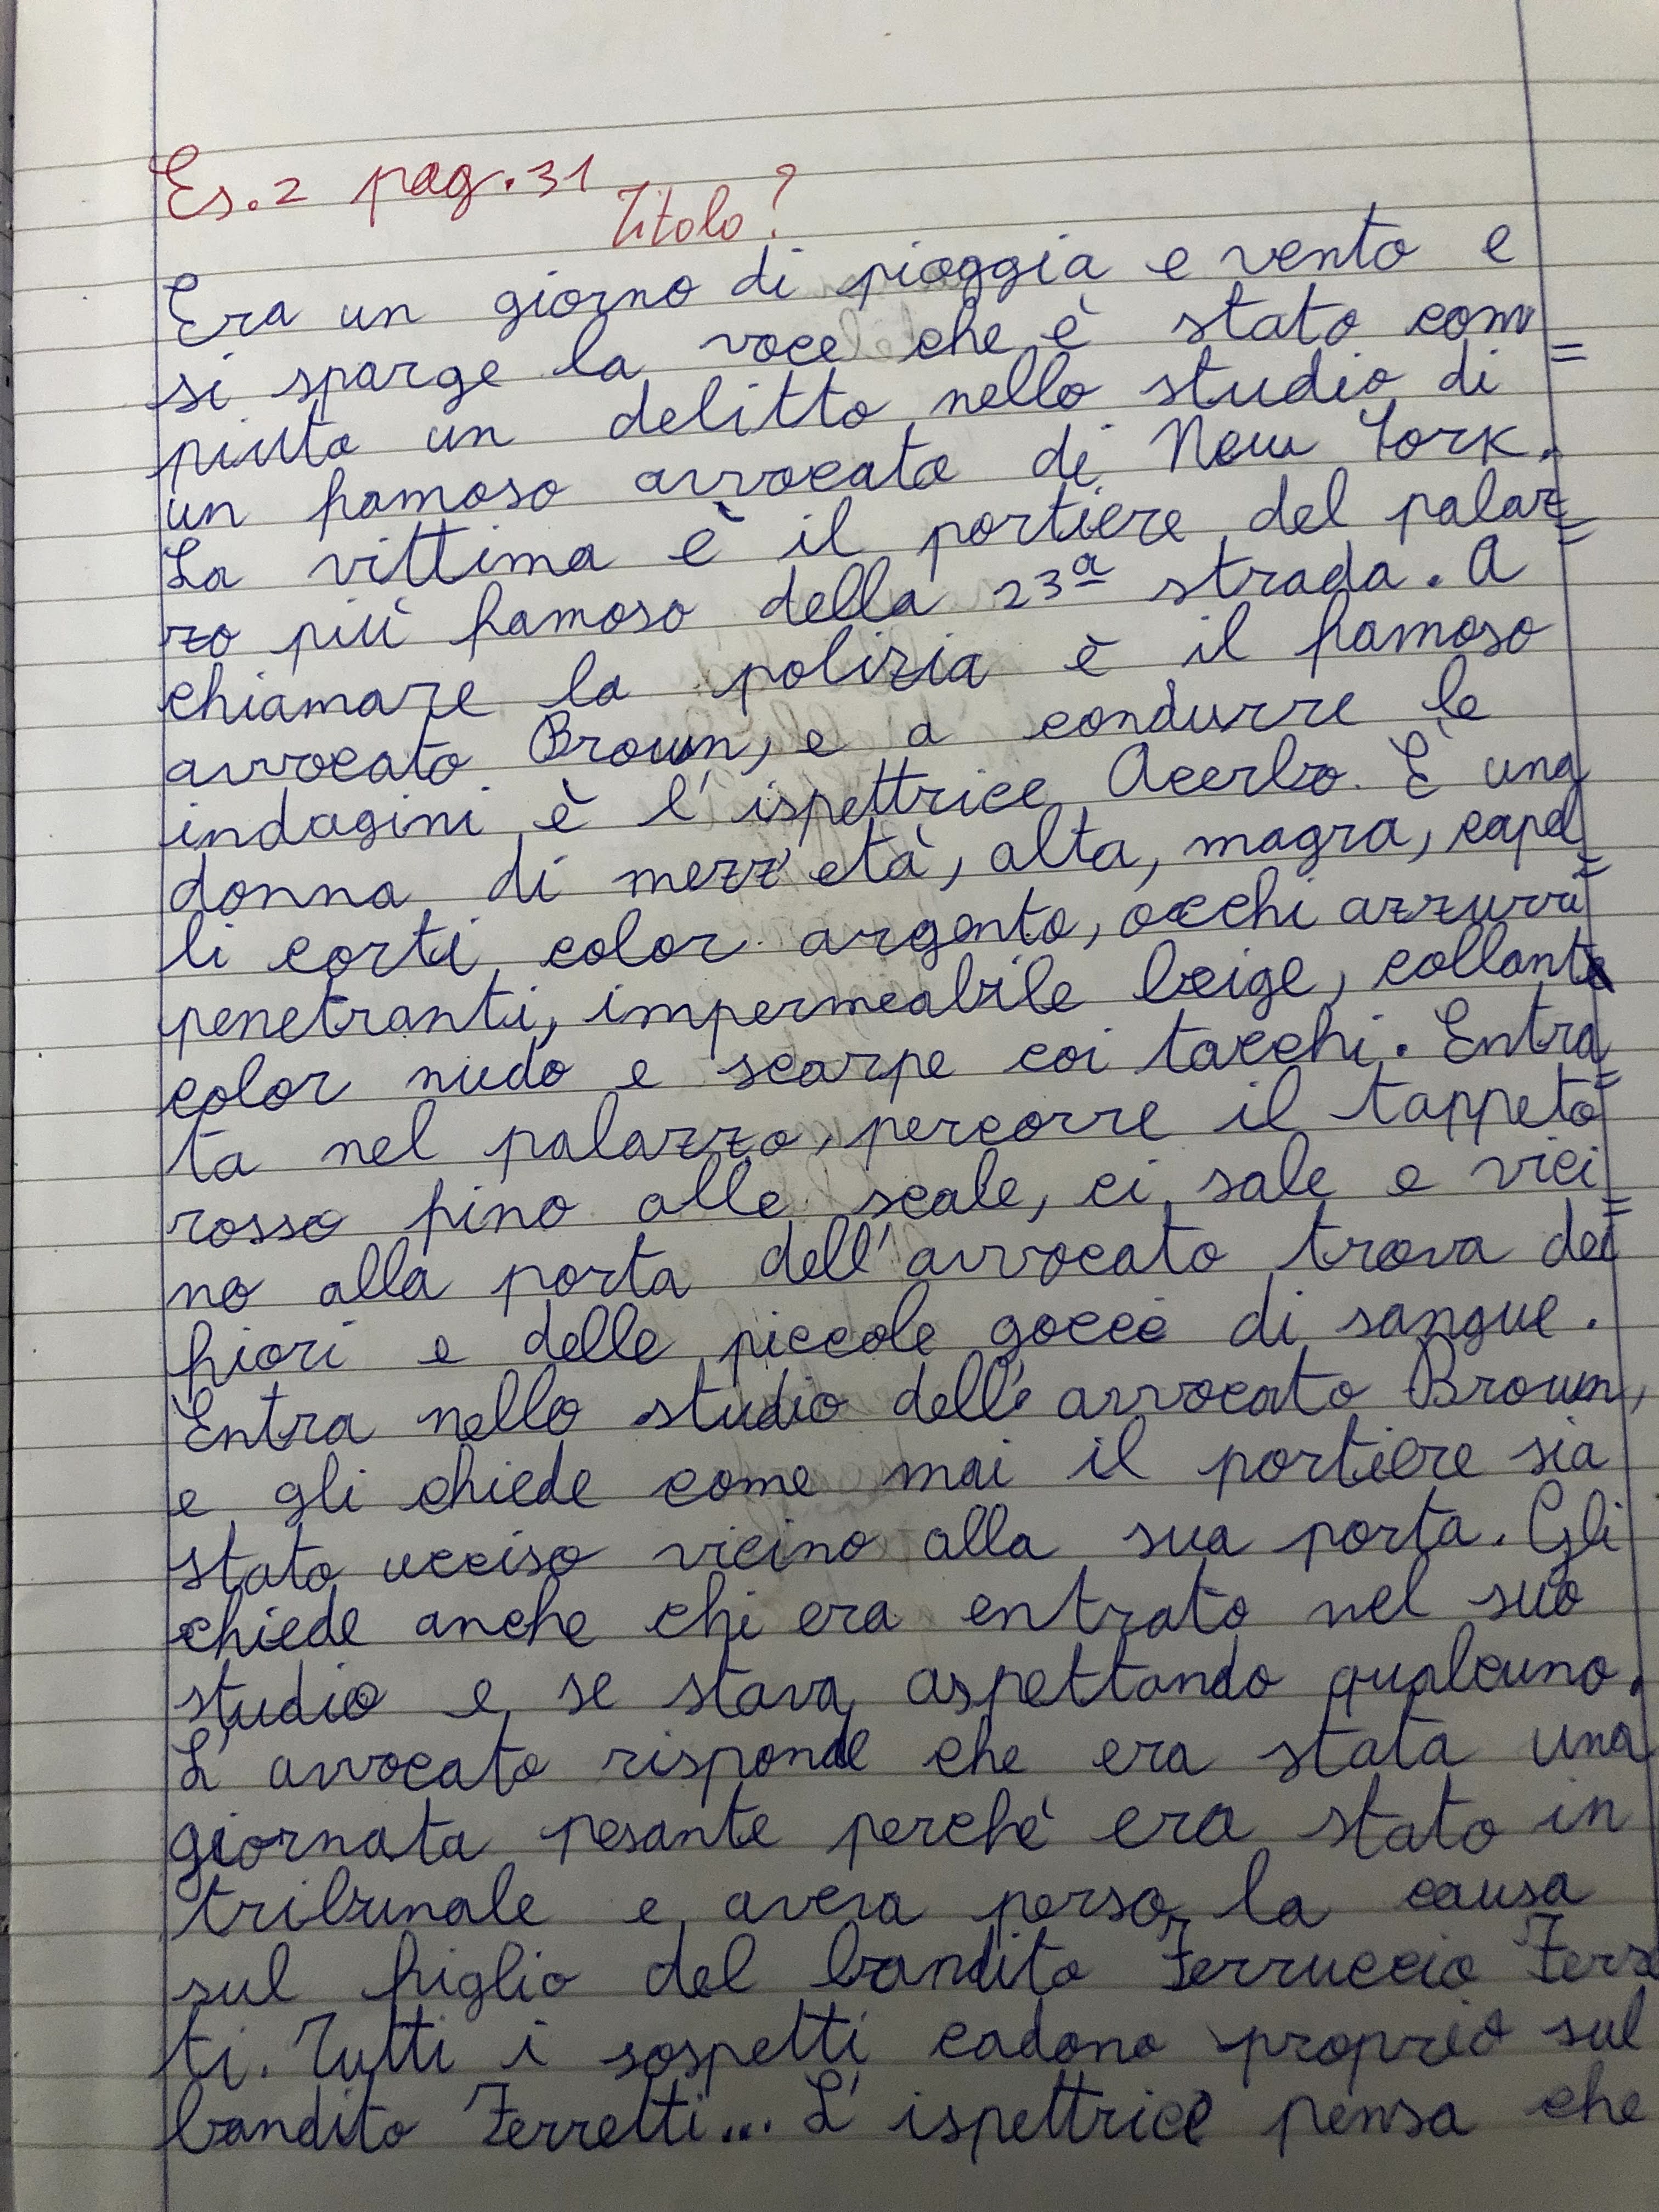 Es. 2 pag. 31
Titolo?
Era un giorno di pioggia e vento e
si sparge la voce che è stato com=
piuto un delitto nello studio di
un famoso avvocato di New York.
La vittima è il portiere del palaz=
zo più famoso della 23ª strada. A
chiamare la polizia è il famoso
avvocato Brown, e a condurre le
indagini è l'ispettrice Acerbo. È una
donna di mezz'età, alta, magra, capel=
li corti color argento, occhi azzurri
penetranti, impermeabile beige, collant
color nudo e scarpe coi tacchi. Entra=
ta nel palazzo, percorre il tappeto
rosso fino alle scale, ci sale e vici=
no alla porta dell'avvocato trova dei
fiori e delle piccole gocce di sangue.
Entra nello studio dell'avvocato Brown,
e gli chiede come mai il portiere sia
stato ucciso vicino alla sua porta. Gli
chiede anche chi era entrato nel suo
studio e se stava aspettando qualcuno.
L'avvocato risponde che era stata una
giornata pesante perché era stato in
tribunale e aveva perso la causa
sul figlio del bandito Ferruccio
ti. Tutti i sospetti cadono proprio sul
bandito Ferretti... L'ispettrice pensa che